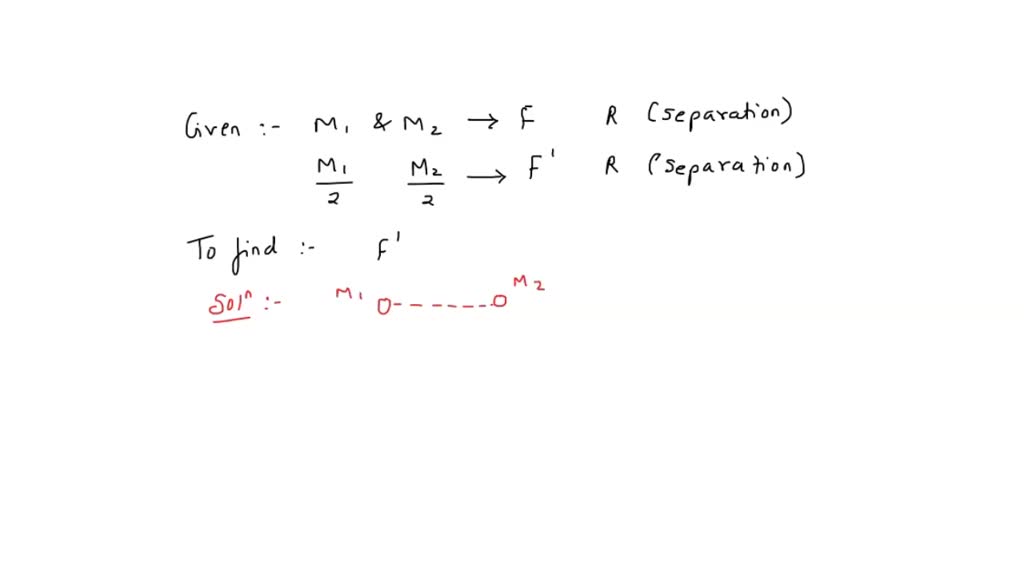 Given :- M1 & M2 → F R (separation)
M1/2 M2/2 → F' R (separation)
To find :- F'
Solⁿ :- M1 M2